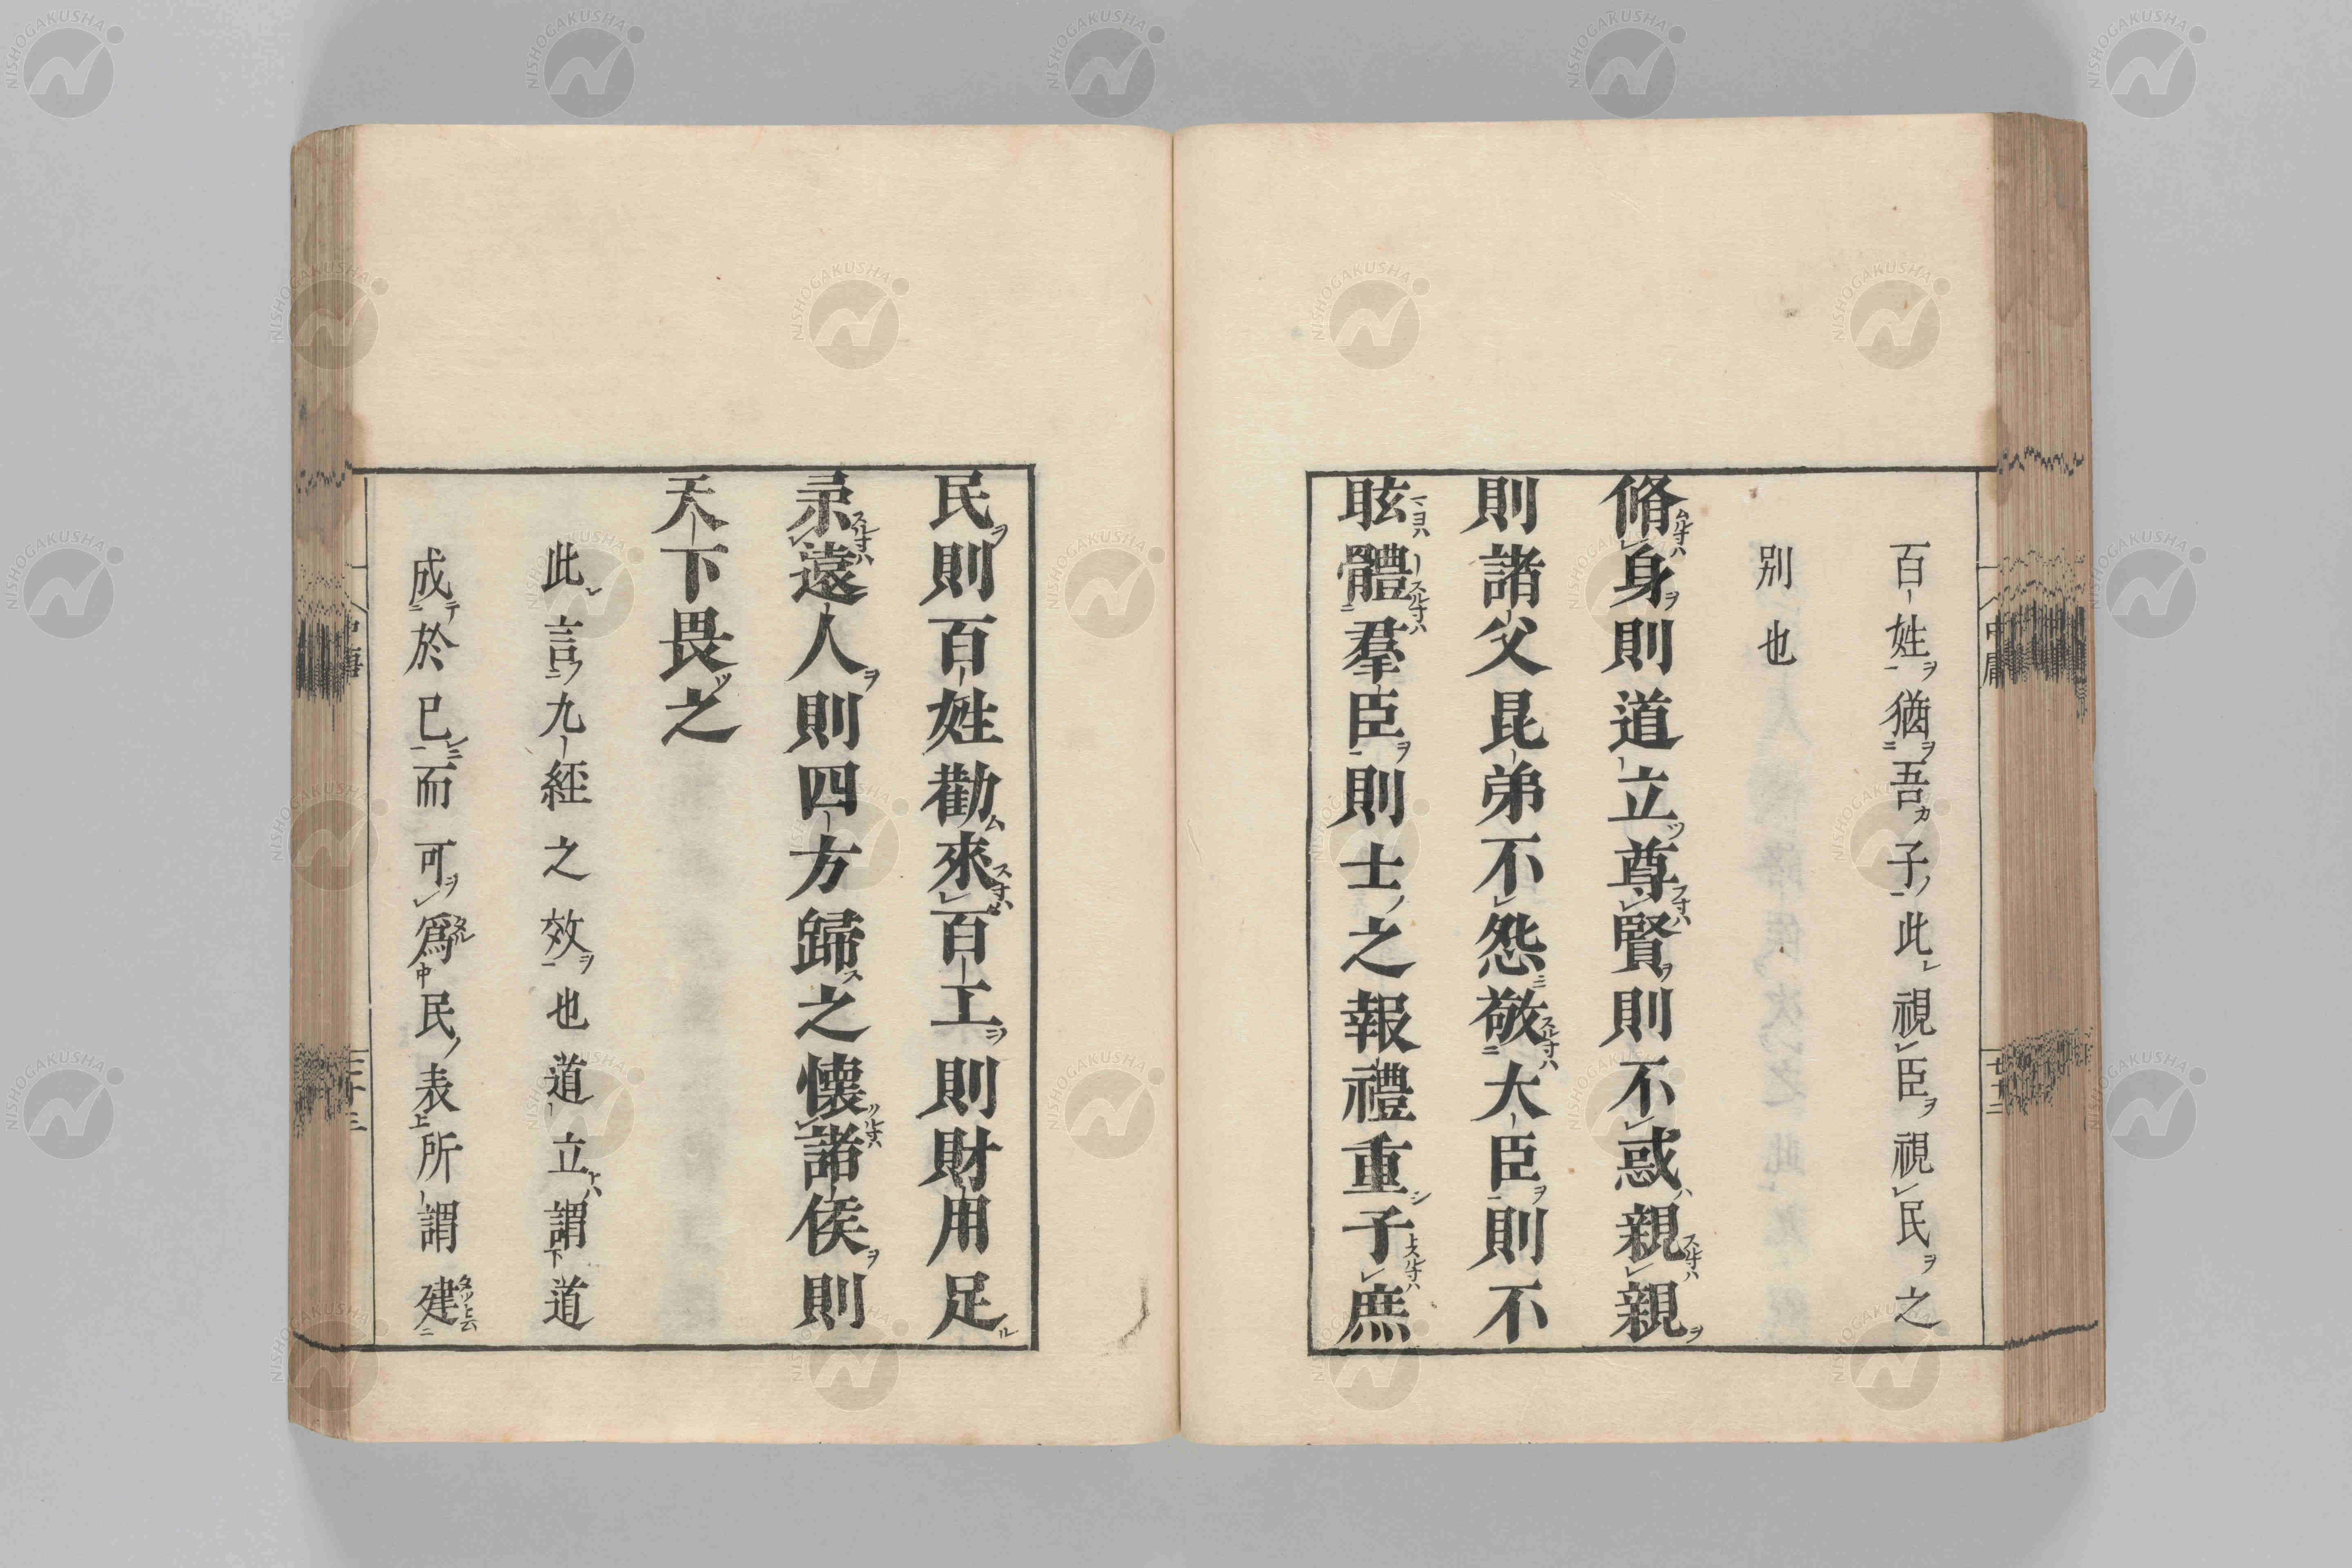 百姓猶吾子此視臣視民之
別也
脩身則道立尊賢則不惑親親
則諸父昆弟不怨敬大臣則不
眩體羣臣則士之報禮重子庶
民則百姓勸來百工則財用足
柔遠人則四方歸之懷諸侯則
天下畏之
此言九經之效也道立謂道
成於已而可爲民表所謂建
中庸
NISHOGAKUSHA